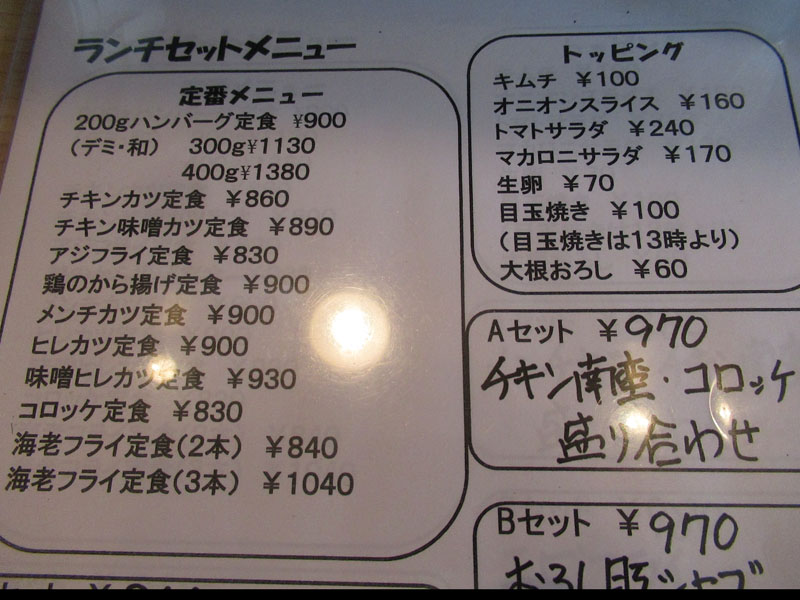 ランチセットメニュー
定番メニュー
200gハンバーグ定食 ¥900
(デミ・和) 300g¥1130
400g¥1380
チキンカツ定食 ¥860
チキン味噌カツ定食 ¥890
アジフライ定食 ¥830
鶏のから揚げ定食 ¥900
メンチカツ定食 ¥900
ヒレカツ定食 ¥900
味噌ヒレカツ定食 ¥930
コロッケ定食 ¥830
海老フライ定食(2本) ¥840
海老フライ定食(3本) ¥1040
トッピング
キムチ ¥100
オニオンスライス ¥160
トマトサラダ ¥240
マカロニサラダ ¥170
生卵 ¥70
目玉焼き ¥100
(目玉焼きは13時より)
大根おろし ¥60
Aセット ¥970
チキン南蛮・コロッケ
盛り合わせ
Bセット ¥970
おろし豚シャブ